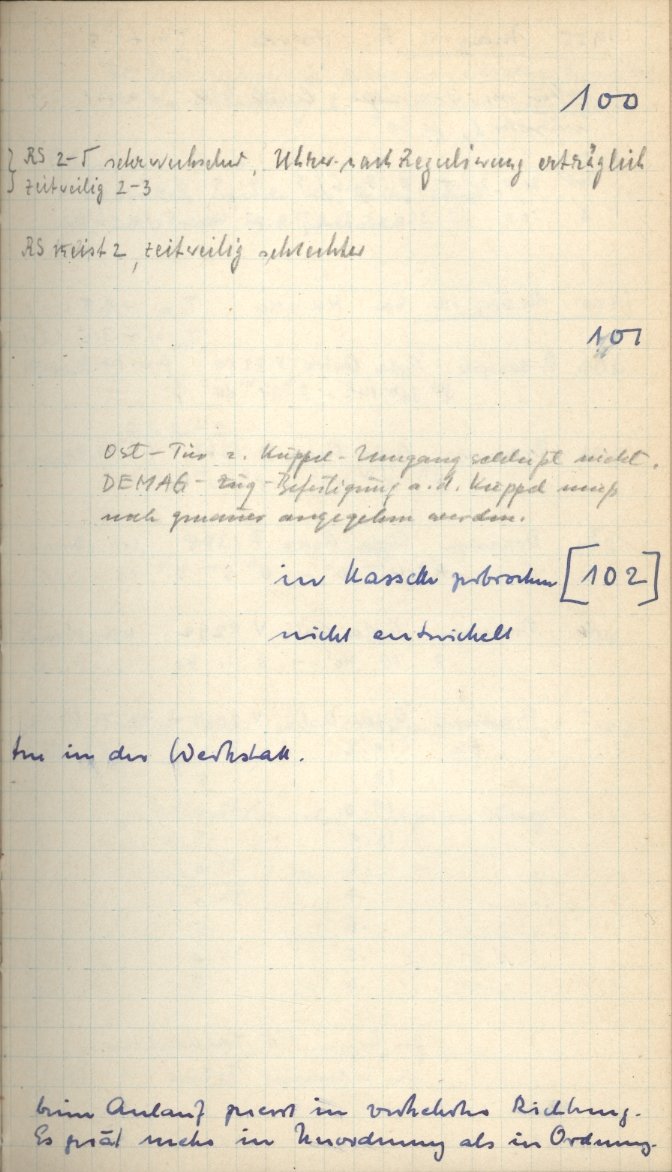 100
RS 2-5 sehr wechselnd, Uhrw. nach Regulierung erträglich
zeitweilig 2-3
RS meist 2, zeitweilig schlechter
101
Ost-Tür z. Kuppel-Umgang schließt nicht.
DEMAG-Zug-Befestigung a. d. Kuppel muß
noch genauer angegeben werden.
in Kassette zerbrochen [102]
nicht entwickelt
ten in der Werkstatt.
beim Anlauf zuerst in verkehrter Richtung.
Es gerät mehr in Unordnung als in Ordnung.